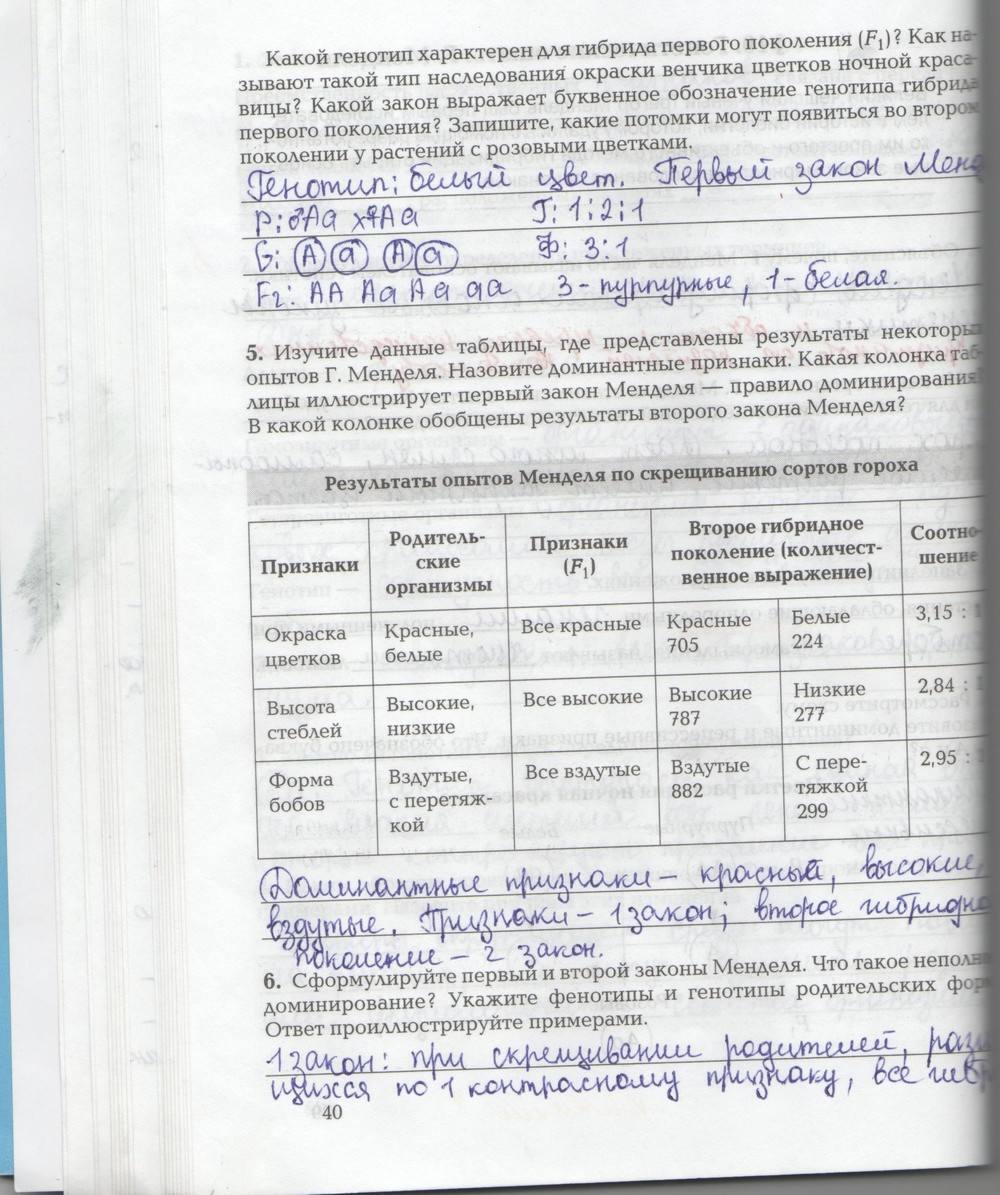 Какой генотип характерен для гибрида первого поколения (F₁)? Как на-
зывают такой тип наследования окраски венчика цветков ночной краса-
вицы? Какой закон выражает буквенное обозначение генотипа гибрида
первого поколения? Запишите, какие потомки могут появиться во втором
поколении у растений с розовыми цветками.
Генотип: белый цвет. Первый закон Менд
P: ♂Aa x ♀Aa Г: 1:2:1
G: A a A a Ф: 3:1
F₂: AA Aa Aa aa 3- пурпурные, 1- белая.
5. Изучите данные таблицы, где представлены результаты некоторы
опытов Г. Менделя. Назовите доминантные признаки. Какая колонка таб-
лицы иллюстрирует первый закон Менделя — правило доминирования?
В какой колонке обобщены результаты второго закона Менделя?
Результаты опытов Менделя по скрещиванию сортов гороха
Признаки
Родитель-
ские
организмы
Признаки
(F₁)
Второе гибридное
поколение (количест-
венное выражение)
Соотно-
шение
Окраска
цветков
Красные,
белые
Все красные
Красные
705
Белые
224
3,15 : 1
Высота
стеблей
Высокие,
низкие
Все высокие
Высокие
787
Низкие
277
2,84 :
Форма
бобов
Вздутые,
с перетяж-
кой
Все вздутые
Вздутые
882
С пере-
тяжкой
299
2,95 :
Доминантные признаки – красный, высокие,
вздутые. Признаки – 1 закон; второе гибридно
поколение – 2 закон.
6. Сформулируйте первый и второй законы Менделя. Что такое неполн
доминирование? Укажите фенотипы и генотипы родительских фор
Ответ проиллюстрируйте примерами.
1 закон: при скрещивании родителей, разл
щихся по 1 контрасному признаку, все гибр
40